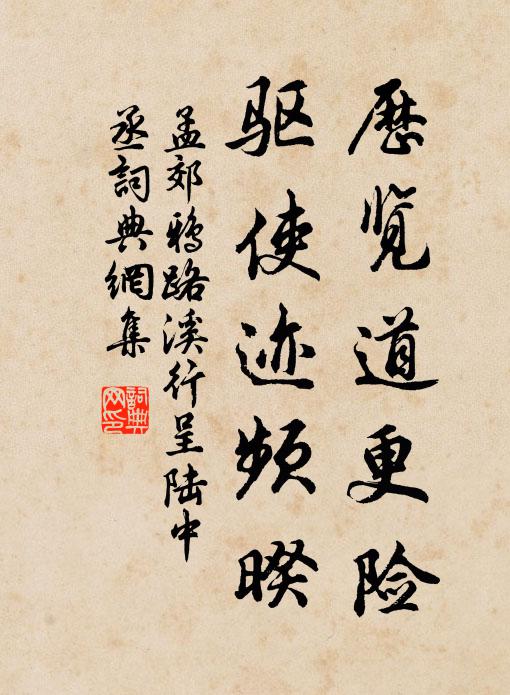 歷览道更险
驱使迹频暌
孟郊鸦路溪行呈陆中
丞詞典網集
詞典
网印